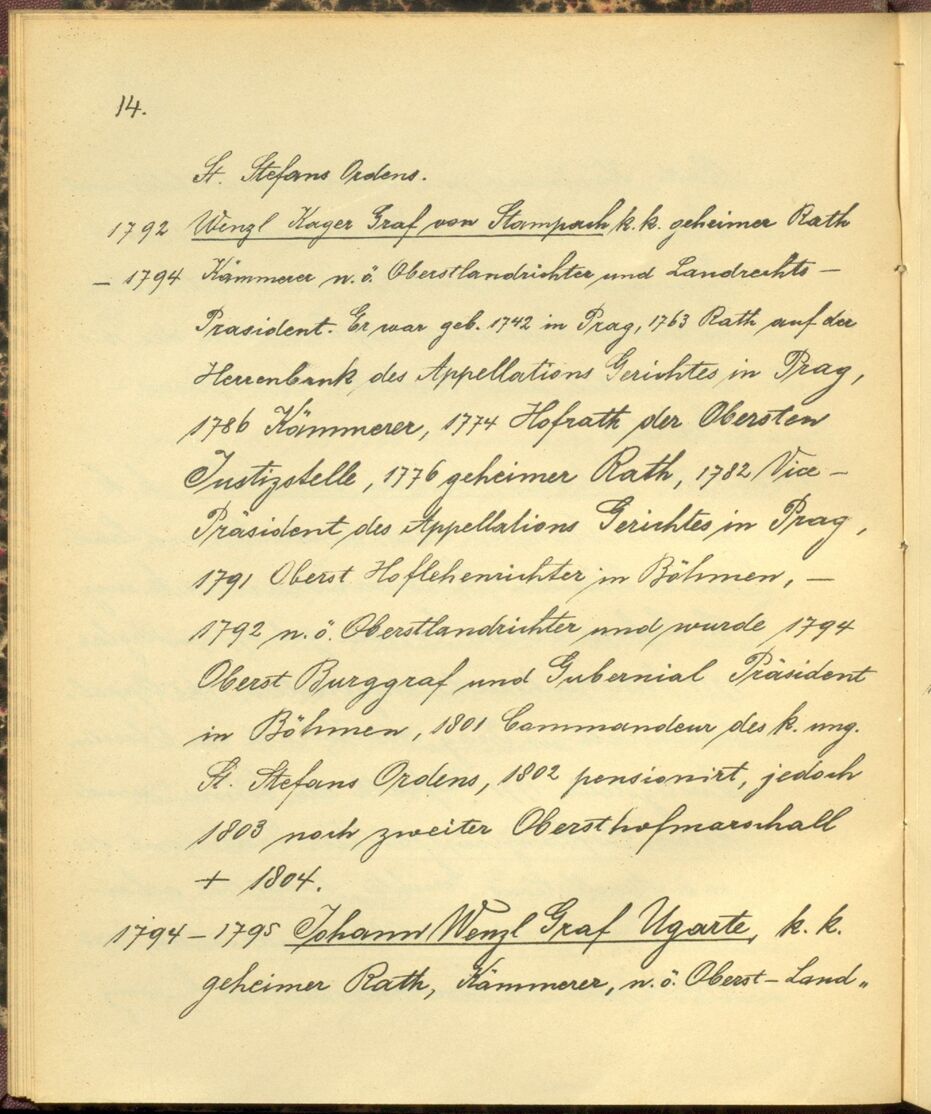 14.
St. Stefans Ordens.
1792 Wenzl Kager Graf von Stampach k. k. geheimer Rath
– 1794 Kämmerer n. ö. Oberstlandrichter und Landrechts –
Präsident. Er war geb. 1742 in Prag, 1763 Rath auf der
Herrenbank des Appellations Gerichtes in Prag,
1786 Kämmerer, 1774 Hofrath der Obersten
Justizstelle, 1776 geheimer Rath, 1782 Vice –
Präsident des Appellations Gerichtes in Prag,
1791 Oberst Hoflehenrichter in Böhmen, –
1792 n. ö. Oberstlandrichter und wurde 1794
Oberst Burggraf und Gubernial Präsident
in Böhmen, 1801 Commandeur des k. ung.
St. Stefans Ordens, 1802 pensionirt, jedoch
1803 noch zweiter Obersthofmarschall
+ 1804.
1794 – 1795 Johann Wenzl Graf Ugarte, k. k.
geheimer Rath, Kämmerer, n. ö. Oberst – Land„